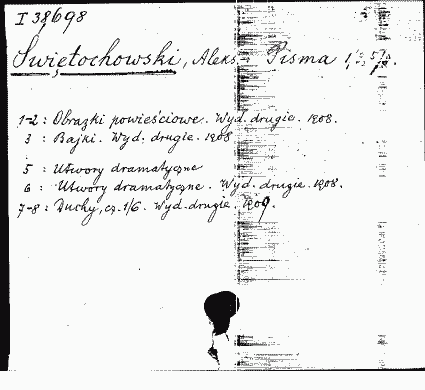 I 38698
Świętochowski, Aleks. Pisma
1-2: Obrazki powieściowe. Wyd. drugie. 1908.
3: Bajki. Wyd. drugie. 1908
5: Utwory dramatyczne
6: Utwory dramatyczne. Wyd. drugie. 1908.
7-8: Duchy, cz. 1/6. Wyd. drugie. 1909.